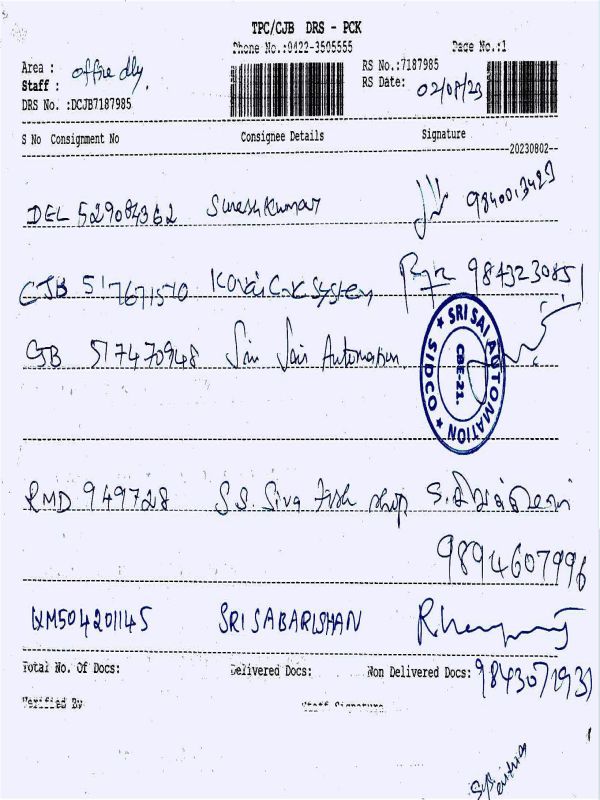 TPC/CJB DRS - PCK
Phone No.:0422-3505555 Page No.:1
Area : office dly.
RS No.:7187985
Staff :
RS Date: 02/08/23
DRS No. :DCJB7187985
S No Consignment No Consignee Details Signature
20230802
DEL 529084362 Sureshkumar 9840013429
CJB 517671510 Kovai C.K System 984323085
CJB 517470948 Sri Sai Automation.
SRI SAI AUTOMATION
CBE-21.
SIDCO
RMD 949728 S.S. Siva Fish shop
9894607996
WM504201145 SRI SABARISHAN
Total No. Of Docs: Delivered Docs: Non Delivered Docs: 9843071931
Verified By Staff Signature